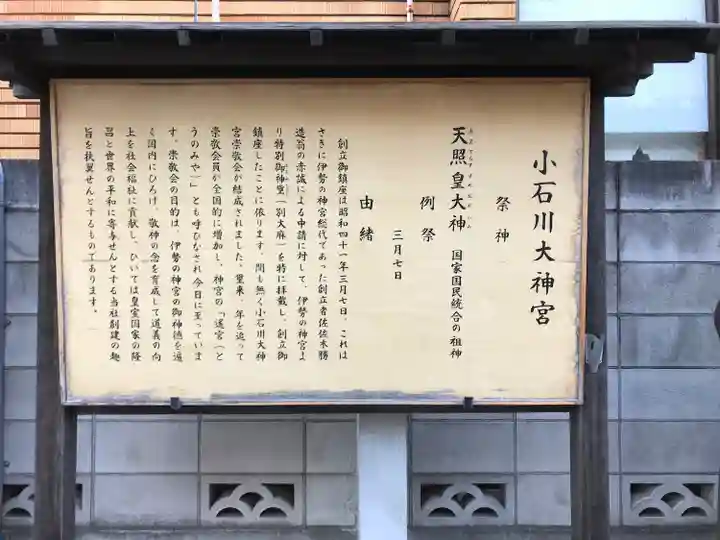 小石川大神宮
祭神
天照皇大神 国家国民統合の祖神
例祭
三月七日
由緒
創立御鎮座は昭和四十一年三月七日、これは
さきに伊勢の神宮総代であった創立者佐佐木勝
造翁の赤誠による申請に対して、伊勢の神宮よ
り特別御神璽(別大麻)を特に拝戴し、創立御
鎮座したことに依ります。間も無く小石川大神
宮崇敬会が結成されました。爾来、年を追って
崇敬会員が全国的に増加し、神宮の「遙宮(と
うのみや)」とも呼びなされ今日に至っていま
す。崇敬会の目的は、伊勢の神宮の御神徳を遍
く国内にひろげ、敬神の念を育成して道義の向
上を社会福祉に貢献し、ひいては皇室国家の隆
昌と世界の平和に寄与せんとする当社創建の趣
旨を扶翼せんとするものであります。